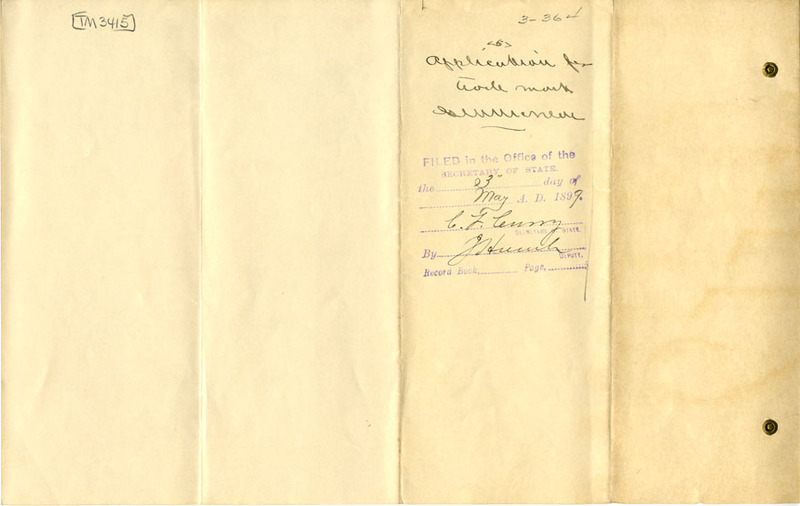 TM3415
3-364
Application for
trade mark
FILED in the Office of the
SECRETARY OF STATE.
the 23 day of
May A. D. 1899.
C. F. Curry
SECRETARY OF STATE.
By
DEPUTY.
Record Book, Page,